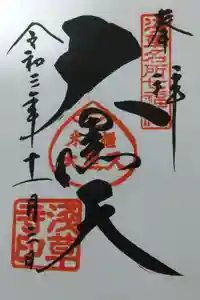 奉拝
浅草名所七福神
大黒天
令和三年十一月
浅草寺印